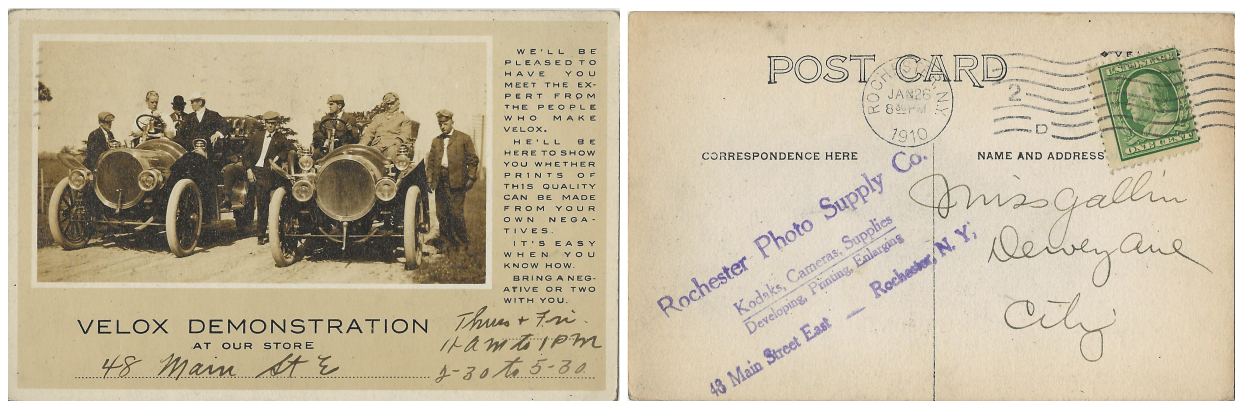 WE'LL BE
PLEASED TO
HAVE YOU
MEET THE EX-
PERT FROM
THE PEOPLE
WHO MAKE
VELOX.
HE'LL BE
HERE TO SHOW
YOU WHETHER
PRINTS OF
THIS QUALITY
CAN BE MADE
FROM YOUR
OWN NEGA-
TIVES.
IT'S EASY
WHEN YOU
KNOW HOW.
BRING A NEG-
ATIVE OR TWO
WITH YOU.
VELOX DEMONSTRATION
AT OUR STORE
48 Main St E
Thurs + Fri.
11 AM to 1 PM
2-30 to 5-30
POST CARD
ROCHESTER, N.Y.
JAN 26
1910
2
D
U.S. POSTAGE
ONE CENT
CORRESPONDENCE HERE
NAME AND ADDRESS
Rochester Photo Supply Co.
Kodaks, Cameras, Supplies
Developing, Printing, Enlarging
48 Main Street East — Rochester, N. Y.
Miss Gallin
Dewey Ave
City